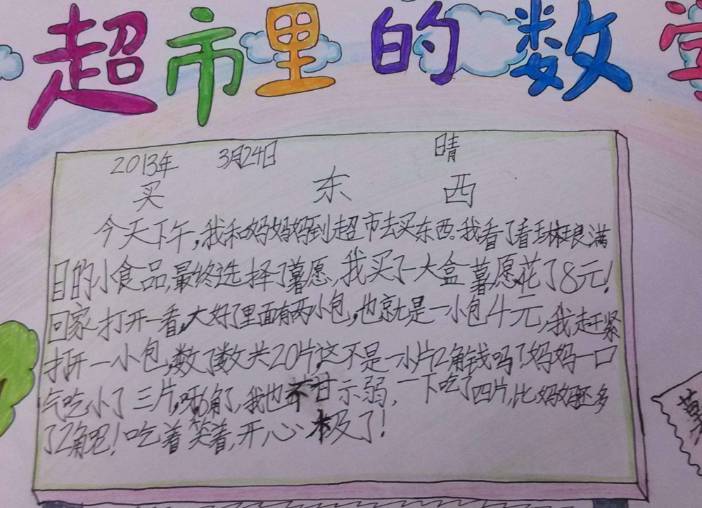 超市里的数学
2013年 3月24日 晴
买东西
今天下午,我和妈妈到超市去买东西。我看了看琳琅满
目的小食品,最终选择了薯愿,我买了一大盒薯愿花了8元!
回家打开一看,大好了里面有两小包,也就是一小包4元,我赶紧
打开一小包,数了数共20片,这不是一小片2角钱吗?妈妈一口
气吃小了三片,哂6角了,我也不甘示弱,一下吃了四片,比妈妈还多
了2角吧!吃着笑着,开心极了!
薯